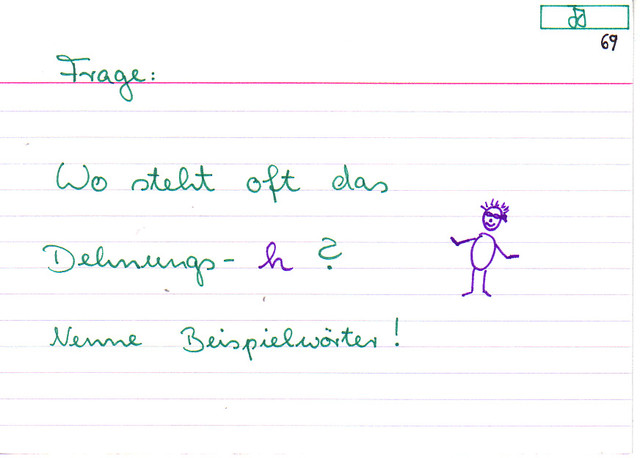 69
Frage:
Wo steht oft das
Dehnungs- h ?
Nenne Beispielwörter!